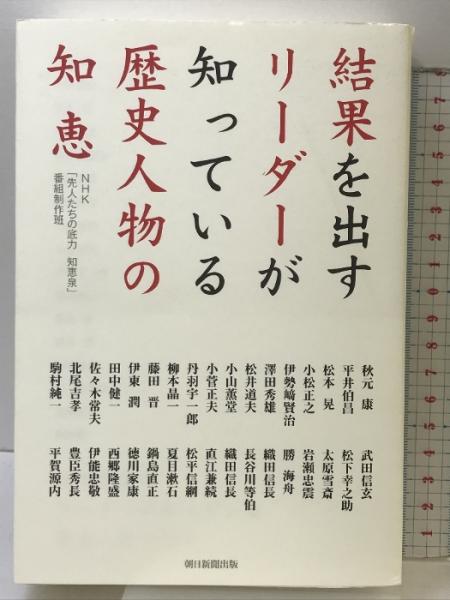 結果を出す
リーダーが
知っている
歴史人物の
知恵
NHK
「先人たちの底力 知恵泉」
番組制作班
秋元 康 武田信玄
平井伯昌 松下幸之助
松本 晃 太原雪斎
小松正之 岩瀬忠震
伊勢﨑賢治 勝 海舟
澤田秀雄 織田信長
松井道夫 長谷川等伯
小山薫堂 織田信長
小菅正夫 直江兼続
丹羽宇一郎 松平信綱
柳本晶一 夏目漱石
藤田 晋 鍋島直正
伊東 潤 徳川家康
田中健一 西郷隆盛
佐々木常夫 伊能忠敬
北尾吉孝 豊臣秀長
駒村純一 平賀源内
朝日新聞出版